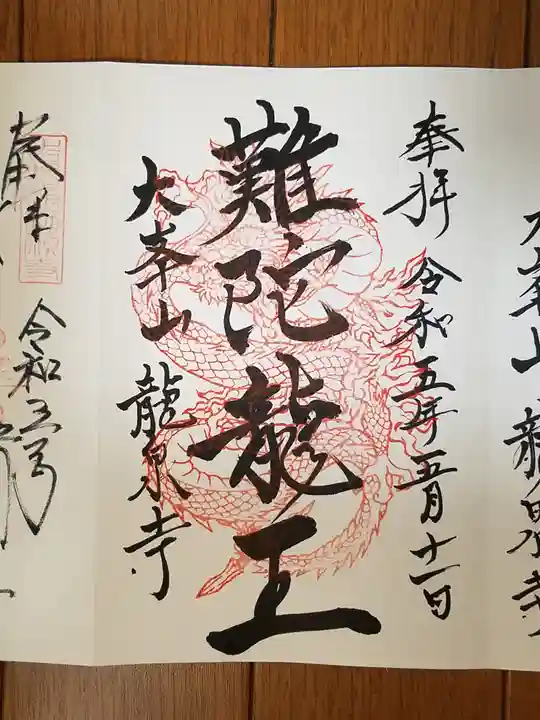 大峯山 龍泉寺
奉拝 令和五年五月十一日
難陀龍王
大峯山 龍泉寺
令和五